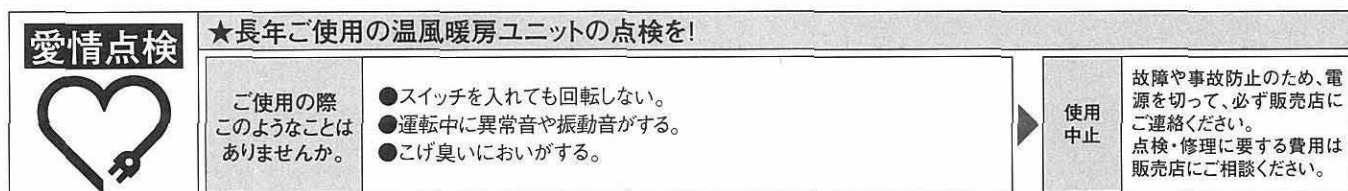 愛情点検
★長年ご使用の温風暖房ユニットの点検を!
ご使用の際
このようなことは
ありませんか。
●スイッチを入れても回転しない。
●運転中に異常音や振動音がする。
●こげ臭いにおいがする。
使用
中止
故障や事故防止のため、電
源を切って、必ず販売店に
ご連絡ください。
点検・修理に要する費用は
販売店にご相談ください。